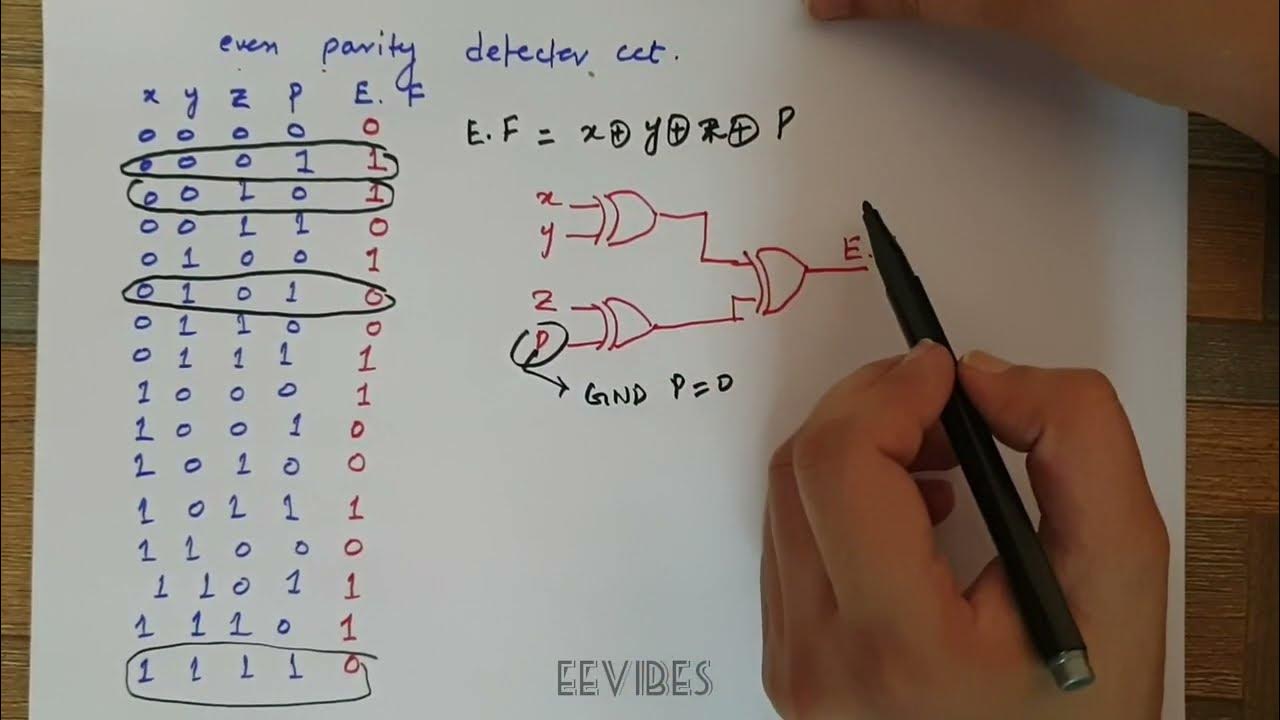 even parity detector cct.
x y z P E. F
0 0 0 0 0
0 0 0 1 1
0 0 1 0 1
0 0 1 1 0
0 1 0 0 1
0 1 0 1 0
0 1 1 0 0
0 1 1 1 1
1 0 0 0 1
1 0 0 1 0
1 0 1 0 0
1 0 1 1 1
1 1 0 0 0
1 1 0 1 1
1 1 1 0 1
1 1 1 1 0
E. F = x ⊕ y ⊕ z ⊕ P
x
y
E.
z
P
GND P = 0
EEVIBES